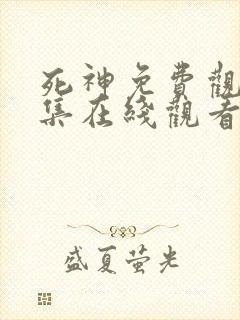 死神免費觀
集在綫觀看
盛夏萤光